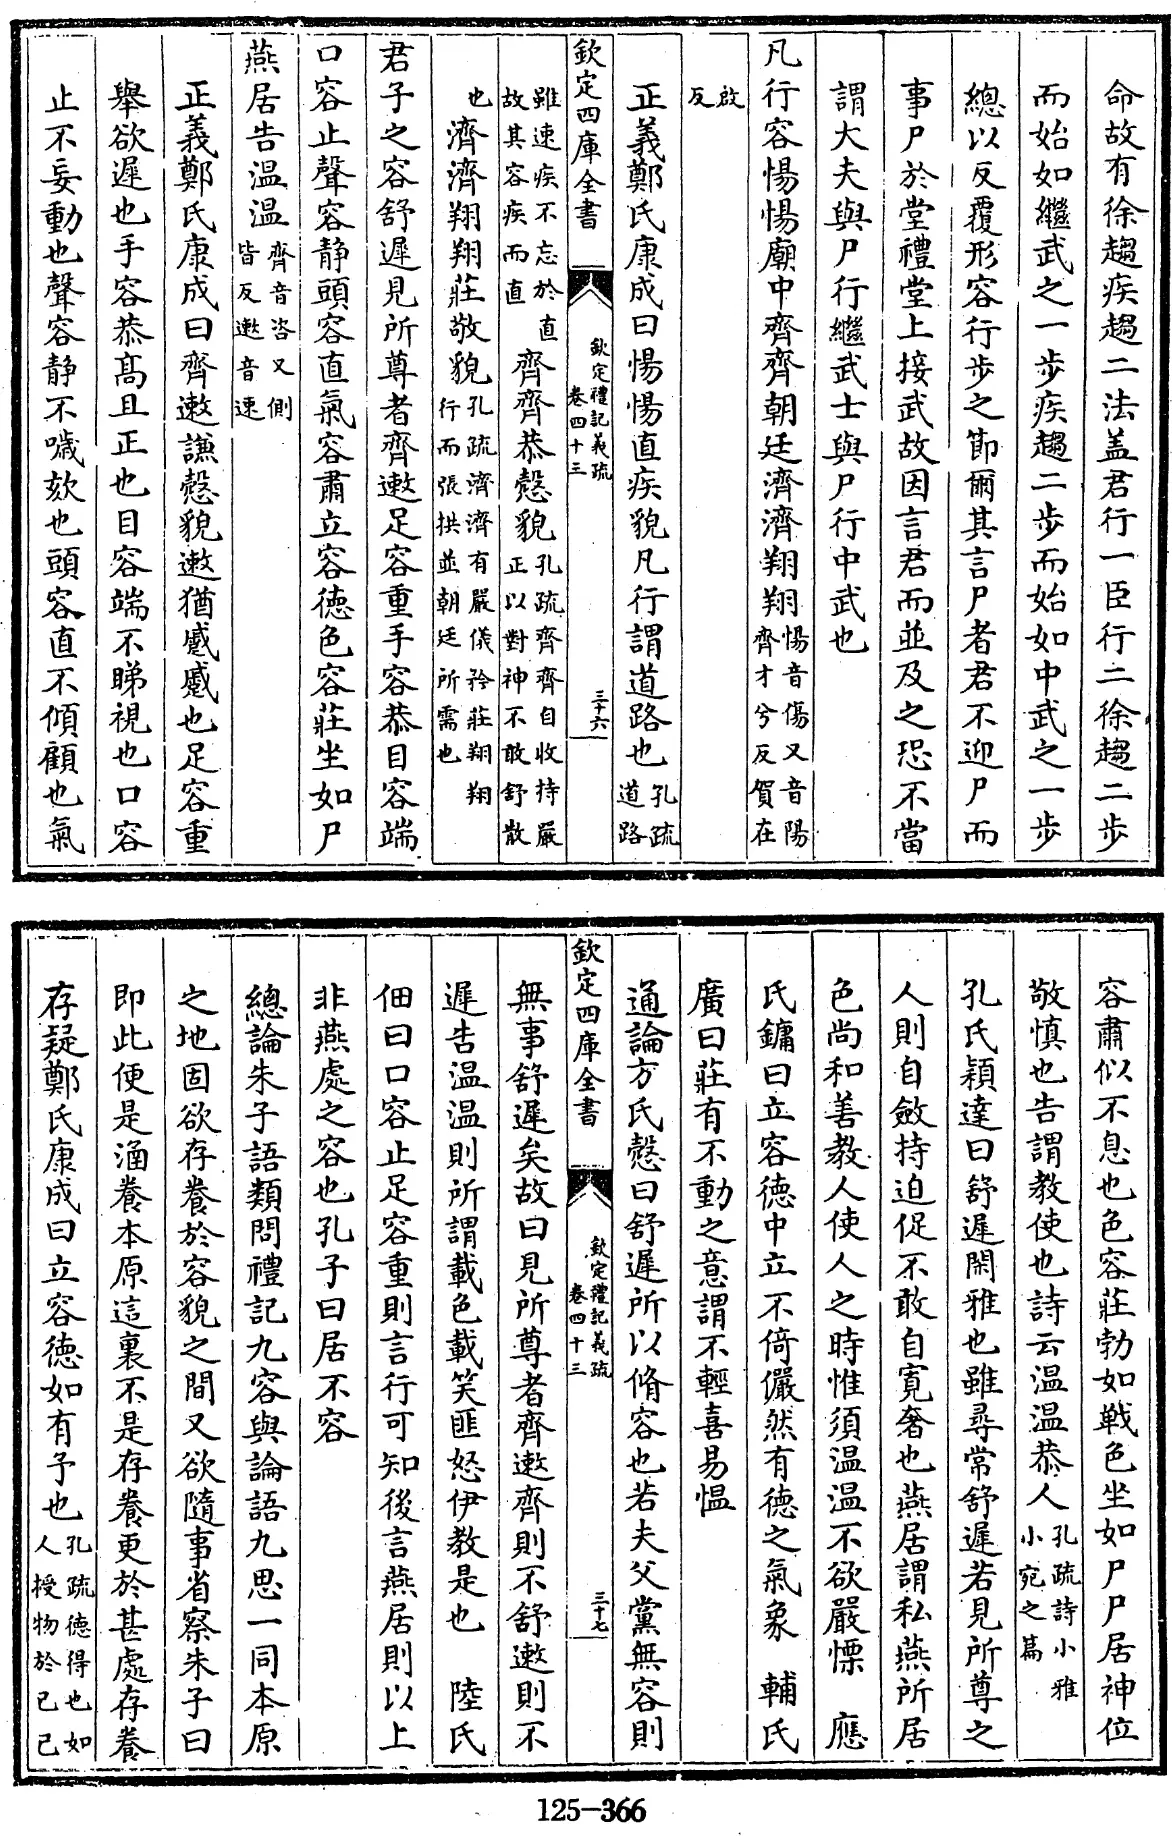 命故有徐趨疾趨二法盖君行一臣行二徐趨二歩
而始如繼武之一歩疾趨二歩而始如中武之一歩
總以反覆形容行歩之節爾其言尸者君不迎尸而
事尸於堂禮堂上接武故因言君而並及之恐不當
謂大夫與尸行繼武士與尸行中武也
凡行容愓愓廟中齊齊朝廷濟濟翔翔愓音傷又音陽齊才兮反賀在
啟反
正義鄭氏康成曰愓愓直疾貌凡行謂道路也孔疏道路
欽定四庫全書 欽定禮記義疏卷四十三 三十六
雖速疾不忘於直故其容疾而直齊齊恭慤貌孔疏齊齊自收持嚴正以對神不敢舒散
也濟濟翔翔莊敬貌孔疏濟濟有嚴儀矜莊翔翔行而張拱並朝廷所需也
君子之容舒遲見所尊者齊遬足容重手容恭目容端
口容止聲容静頭容直氣容肅立容德色容莊坐如尸
燕居告温温齊音咨又側皆反遬音速
正義鄭氏康成曰齊遬謙慤貌遬猶蹙蹙也足容重
舉欲遲也手容恭髙且正也目容端不睇視也口容
止不妄動也聲容静不噦欬也頭容直不傾顧也氣
容肅似不息也色容莊勃如戰色坐如尸尸居神位
敬慎也告謂教使也詩云温温恭人孔疏詩小雅小宛之篇
孔氏穎達曰舒遲閑雅也雖尋常舒遲若見所尊之
人則自斂持迫促不敢自寛奢也燕居謂私燕所居
色尚和善教人使人之時惟須温温不欲嚴慄 應
氏鏞曰立容德中立不倚儼然有德之氣象 輔氏
廣曰莊有不動之意謂不輕喜易愠
通論方氏慤曰舒遲所以脩容也若夫父黨無容則
欽定四庫全書 欽定禮記義疏卷四十三 三十七
無事舒遲矣故曰見所尊者齊遬齊則不舒遬則不
遲告温温則所謂載色載笑匪怒伊教是也 陸氏
佃曰口容止足容重則言行可知後言燕居則以上
非燕處之容也孔子曰居不容
總論朱子語類問禮記九容與論語九思一同本原
之地固欲存養於容貌之間又欲隨事省察朱子曰
即此便是涵養本原這裏不是存養更於甚處存養
存疑鄭氏康成曰立容德如有予也孔疏德得也如人授物於已已
125-366